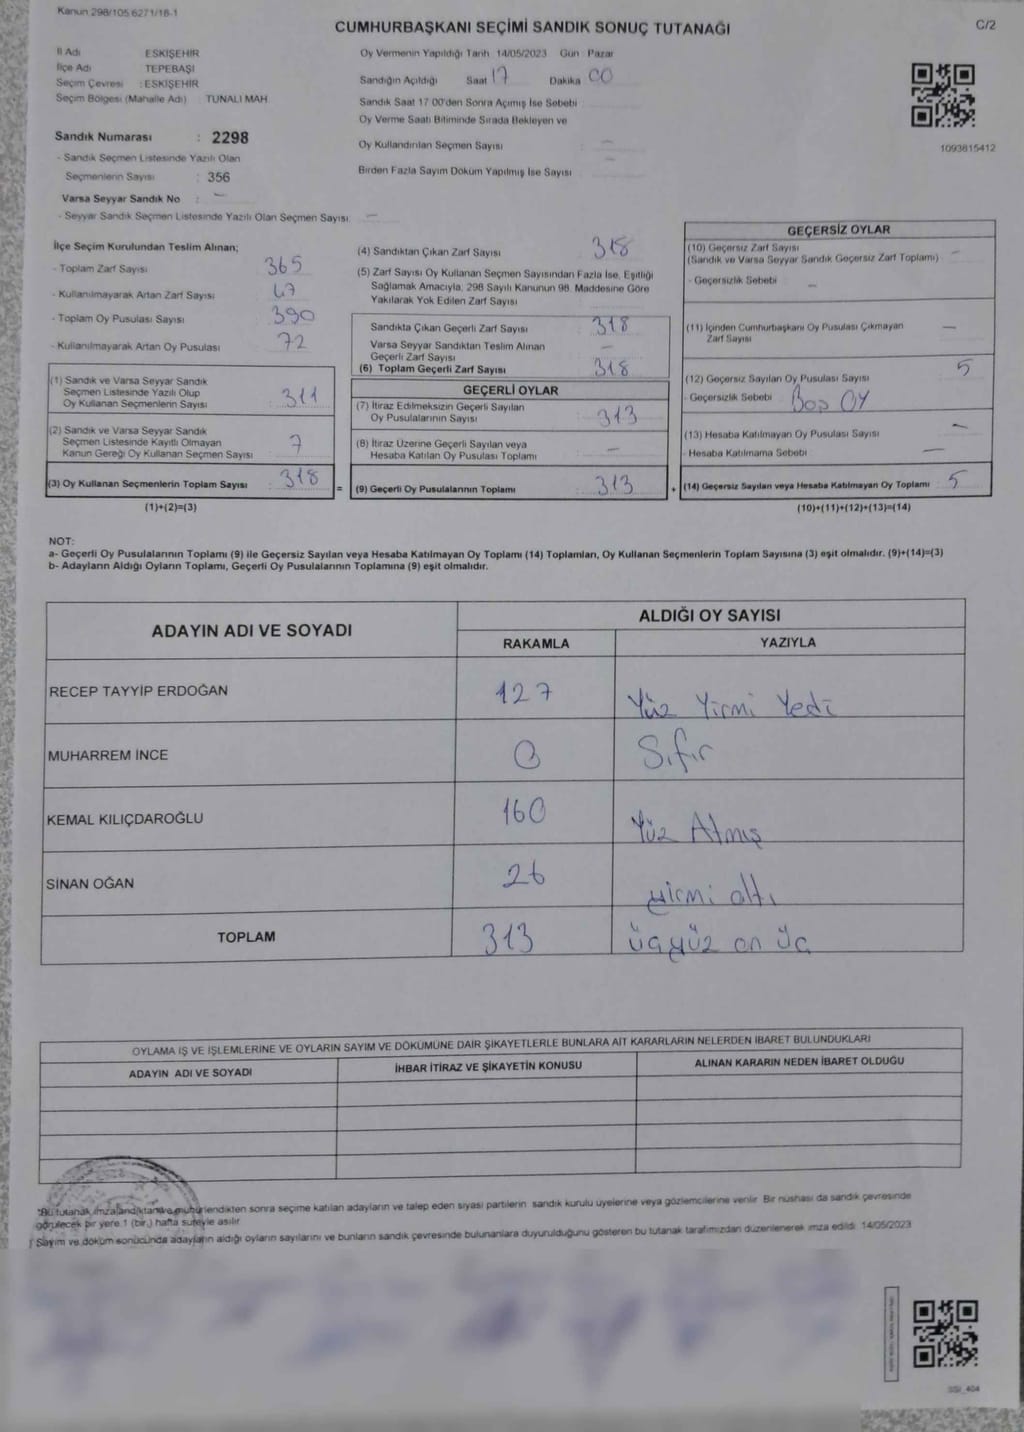 Kanun 298/105 6271/18-1
CUMHURBAŞKANI SEÇİMİ SANDIK SONUÇ TUTANAĞI
C/2
İl Adı ESKİŞEHİR
İlçe Adı TEPEBAŞI
Seçim Çevresi : ESKİŞEHİR
Seçim Bölgesi (Mahalle Adı) : TUNALI MAH
Oy Vermenin Yapıldığı Tarih 14/05/2023 Gün : Pazar
Sandığın Açıldığı Saat 17 Dakika 00
Sandık Saat 17 00'den Sonra Açımış İse Sebebi
Oy Verme Saati Bitiminde Sırada Bekleyen ve
Oy Kullandırılan Seçmen Sayısı : —
Birden Fazla Sayım Döküm Yapılmış İse Sayısı —
1093815412
Sandık Numarası : 2298
- Sandık Seçmen Listesinde Yazılı Olan
Seçmenlerin Sayısı : 356
Varsa Seyyar Sandık No : —
- Seyyar Sandık Seçmen Listesinde Yazılı Olan Seçmen Sayısı —
İlçe Seçim Kurulundan Teslim Alınan;
- Toplam Zarf Sayısı 365
- Kullanılmayarak Artan Zarf Sayısı 47
- Toplam Oy Pusulası Sayısı 390
- Kullanılmayarak Artan Oy Pusulası 72
(1) Sandık ve Varsa Seyyar Sandık
Seçmen Listesinde Yazılı Olup
Oy Kullanan Seçmenlerin Sayısı 311
(2) Sandık ve Varsa Seyyar Sandık
Seçmen Listesinde Kayıtlı Olmayan
Kanun Gereği Oy Kullanan Seçmen Sayısı 7
(3) Oy Kullanan Seçmenlerin Toplam Sayısı 318
(1)+(2)=(3)
(4) Sandıktan Çıkan Zarf Sayısı 318
(5) Zarf Sayısı Oy Kullanan Seçmen Sayısından Fazla İse, Eşitliği
Sağlamak Amacıyla, 298 Sayılı Kanunun 98. Maddesine Göre
Yakılarak Yok Edilen Zarf Sayısı
Sandıkta Çıkan Geçerli Zarf Sayısı 318
Varsa Seyyar Sandıktan Teslim Alınan
Geçerli Zarf Sayısı —
(6) Toplam Geçerli Zarf Sayısı 318
GEÇERLİ OYLAR
(7) İtiraz Edilmeksizin Geçerli Sayılan
Oy Pusulalarının Sayısı 313
(8) İtiraz Üzerine Geçerli Sayılan veya
Hesaba Katılan Oy Pusulası Toplamı —
= (9) Geçerli Oy Pusulalarının Toplamı 313
GEÇERSİZ OYLAR
(10) Geçersiz Zarf Sayısı —
(Sandık ve Varsa Seyyar Sandık Geçersiz Zarf Toplamı)
- Geçersizlik Sebebi —
(11) İçinden Cumhurbaşkanı Oy Pusulası Çıkmayan —
Zarf Sayısı
(12) Geçersiz Sayılan Oy Pusulası Sayısı 5
- Geçersizlik Sebebi Boş OY
(13) Hesaba Katılmayan Oy Pusulası Sayısı —
- Hesaba Katılmama Sebebi —
+ (14) Geçersiz Sayılan veya Hesaba Katılmayan Oy Toplamı 5
(10)+(11)+(12)+(13)=(14)
NOT:
a- Geçerli Oy Pusulalarının Toplamı (9) ile Geçersiz Sayılan veya Hesaba Katılmayan Oy Toplamı (14) Toplamları, Oy Kullanan Seçmenlerin Toplam Sayısına (3) eşit olmalıdır. (9)+(14)=(3)
b- Adayların Aldığı Oyların Toplamı, Geçerli Oy Pusulalarının Toplamına (9) eşit olmalıdır.
ADAYIN ADI VE SOYADI
ALDIĞI OY SAYISI
RAKAMLA YAZIYLA
RECEP TAYYİP ERDOĞAN 127 Yüz Yirmi Yedi
MUHARREM İNCE 0 Sıfır
KEMAL KILIÇDAROĞLU 160 Yüz Atmış
SİNAN OĞAN 26 yirmi altı
TOPLAM 313 üçyüz on üç
OYLAMA İŞ VE İŞLEMLERİNE VE OYLARIN SAYIM VE DÖKÜMÜNE DAİR ŞİKAYETLERLE BUNLARA AİT KARARLARIN NELERDEN İBARET BULUNDUKLARI
ADAYIN ADI VE SOYADI İHBAR İTİRAZ VE ŞİKAYETİN KONUSU ALINAN KARARIN NEDEN İBARET OLDUĞU
*Bu tutanak imzalandıktan ve mühürlendikten sonra seçime katılan adayların ve talep eden siyasi partilerin sandık kurulu üyelerine veya gözlemcilerine verilir Bir nushası da sandık çevresinde
görülecek bir yere 1 (bir,) hafta süreyle asılır
Sayım ve döküm sonucunda adayların aldığı oyların sayılarını ve bunların sandık çevresinde bulunanlara duyurulduğunu gösteren bu tutanak tarafımızdan düzenlenerek imza edildi 14/05/2023
SSI_404